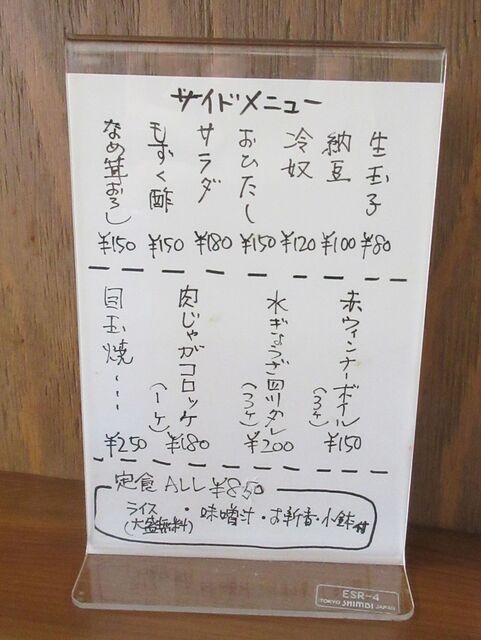 サイドメニュー
生玉子 ¥80
納豆 ¥100
冷奴 ¥120
おひたし ¥150
サラダ ¥180
もずく酢 ¥150
なめ茸おろし ¥150
赤ウィンナーボイル(3ケ) ¥150
水ぎょうざ四川ダレ(3ケ) ¥200
肉じゃがコロッケ(1ケ) ¥180
目玉焼 ¥250
定食 ALL ¥850
ライス・味噌汁・お新香・小鉢付
(大盛無料)
ESR-4
TOKYO SHIMBI JAPAN